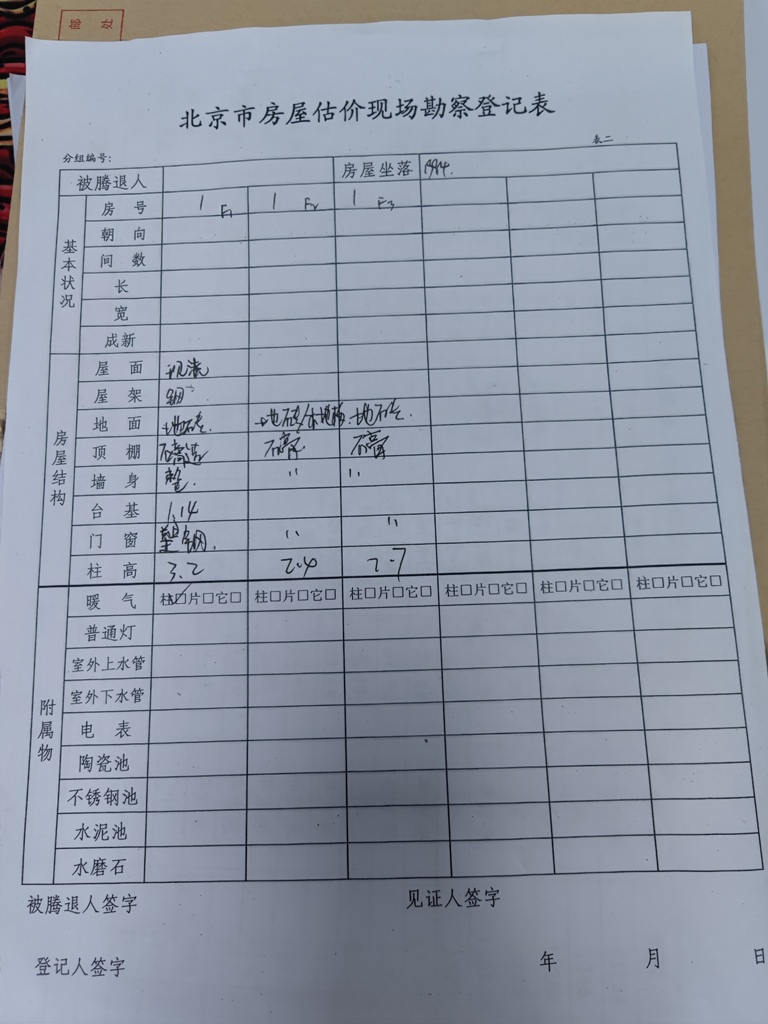 北京市房屋估价现场勘察登记表
表二
分组编号:
被腾退人 房屋坐落 1984.
基本状况
房号 1 F1 1 F2 1 F3
朝向
间数
长
宽
成新
房屋结构
屋面 现浇
屋架 钢
地面 地砖. 地砖/木地板 地砖.
顶棚 石膏 石膏 石膏
墙身 整. " "
台基 1.14
门窗 塑钢. " "
柱高 3.2 2.4 2.7
附属物
暖气 柱☑片□它□ 柱□片□它□ 柱□片□它□ 柱□片□它□ 柱□片□它□ 柱□片□它□
普通灯
室外上水管
室外下水管
电表
陶瓷池
不锈钢池
水泥池
水磨石
被腾退人签字 见证人签字
登记人签字 年 月 日